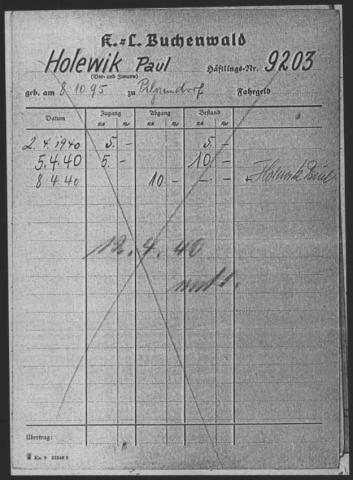 K.=L. Buchenwald
Holewik Paul Häftlings-Nr. 9203
(Vor- und Zuname)
geb. am 8.10.95 zu Fahrgeld
Datum Zugang Abgang Bestand
RM RPf RM RPf RM RPf
2.4.1940 5.- 5.-
5.4.40 5.- 10.-
8.4.40 10.- - Holewik Paul
12.4.40
entl.
Übertrag: